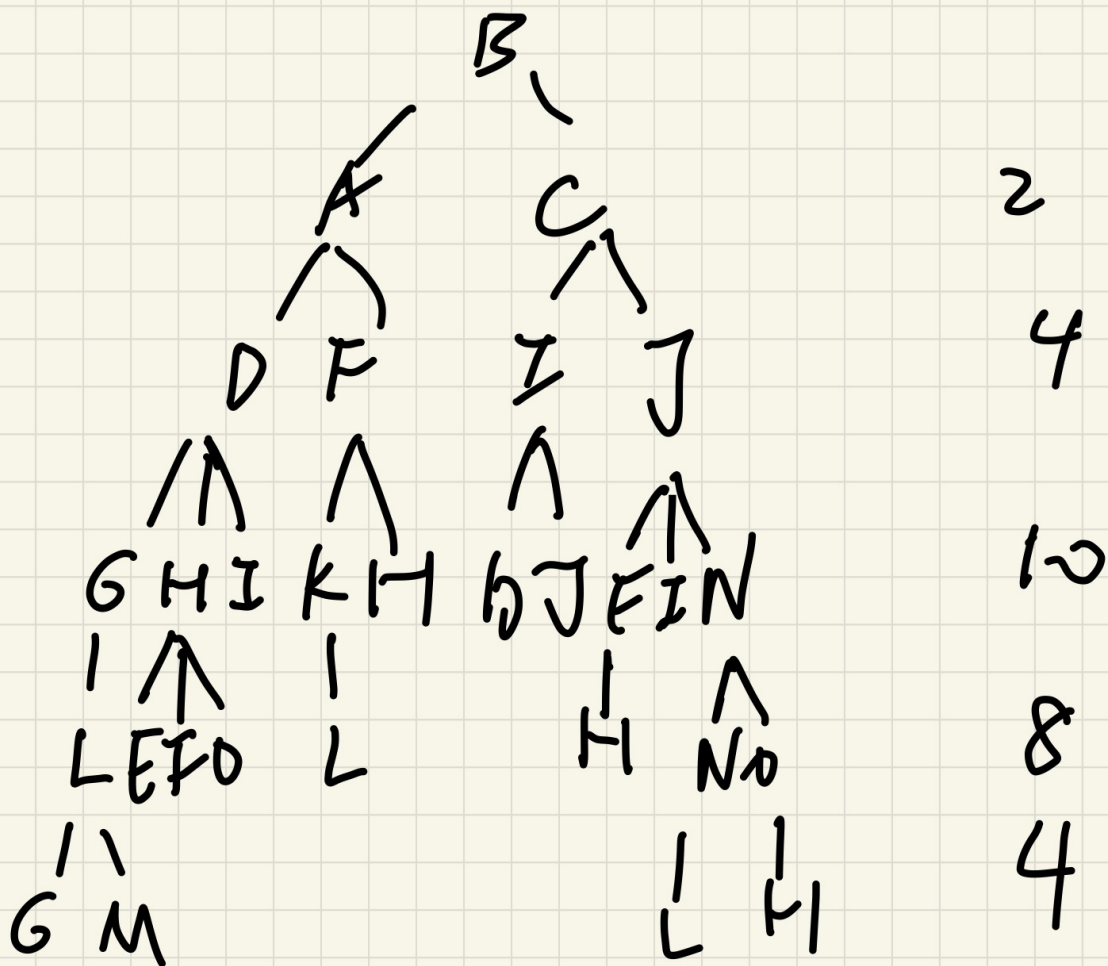 B
A C 2
D F I J 4
G H I K H D J E I N 10
L E F O L H N O 8
G M L H 4